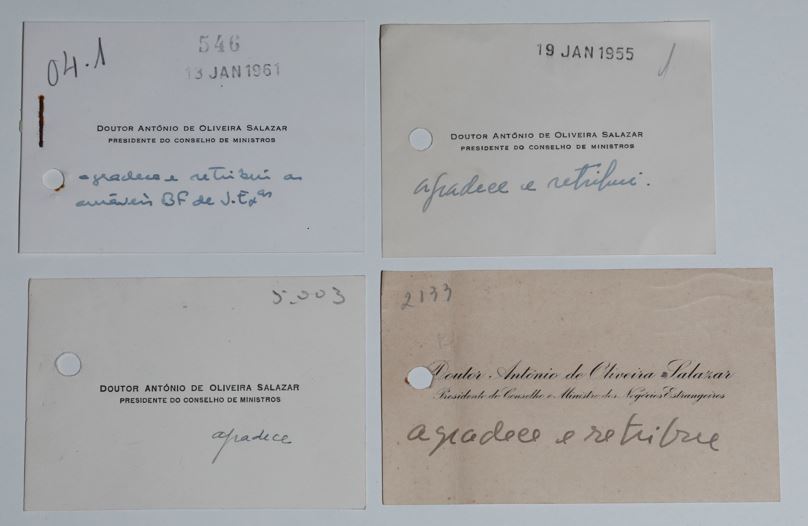 04.1
546
13 JAN 1961
DOUTOR ANTÓNIO DE OLIVEIRA SALAZAR
PRESIDENTE DO CONSELHO DE MINISTROS
agradece e retribui as
amáveis BF de V. Exas
19 JAN 1955
DOUTOR ANTÓNIO DE OLIVEIRA SALAZAR
PRESIDENTE DO CONSELHO DE MINISTROS
agradece e retribui.
5.003
DOUTOR ANTÓNIO DE OLIVEIRA SALAZAR
PRESIDENTE DO CONSELHO DE MINISTROS
agradece
2133
Doutor António de Oliveira Salazar
Presidente do Conselho e Ministro dos Negócios Estrangeiros
agradece e retribue